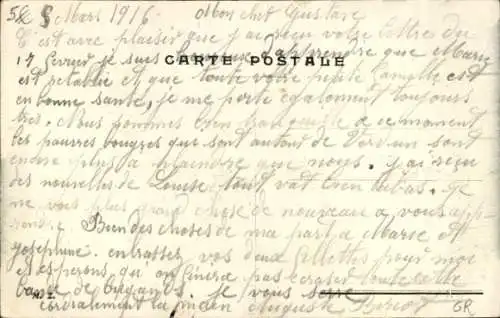 5 Mars 1916 Mon cher Gustave
C'est avec plaisir que j'ai reçu votre lettre du
17 fevrier je suis d'apprendre que Marie
CARTE POSTALE
est retablie et que toute votre petite famille est
en bonne santé, je me porte egalement toujours
tres. Nous sommes bien tranquille a ce moment
les pauvres bougres qui sont autour de Verdun sont
encore plus a plaindre que nous. j'ai reçu
des nouvelles de Louise tout vat bien labas. Je
ne vois plus grand chose de nouveau a vous app-
rendre. Bien des choses de ma part a Marie et
Josephine. embrasser vos deux fillettes pour moi
et esperons qu'on finira pas ecraser toute cette
bande de brigands. je vous serre
cordialement la main Auguste
GR